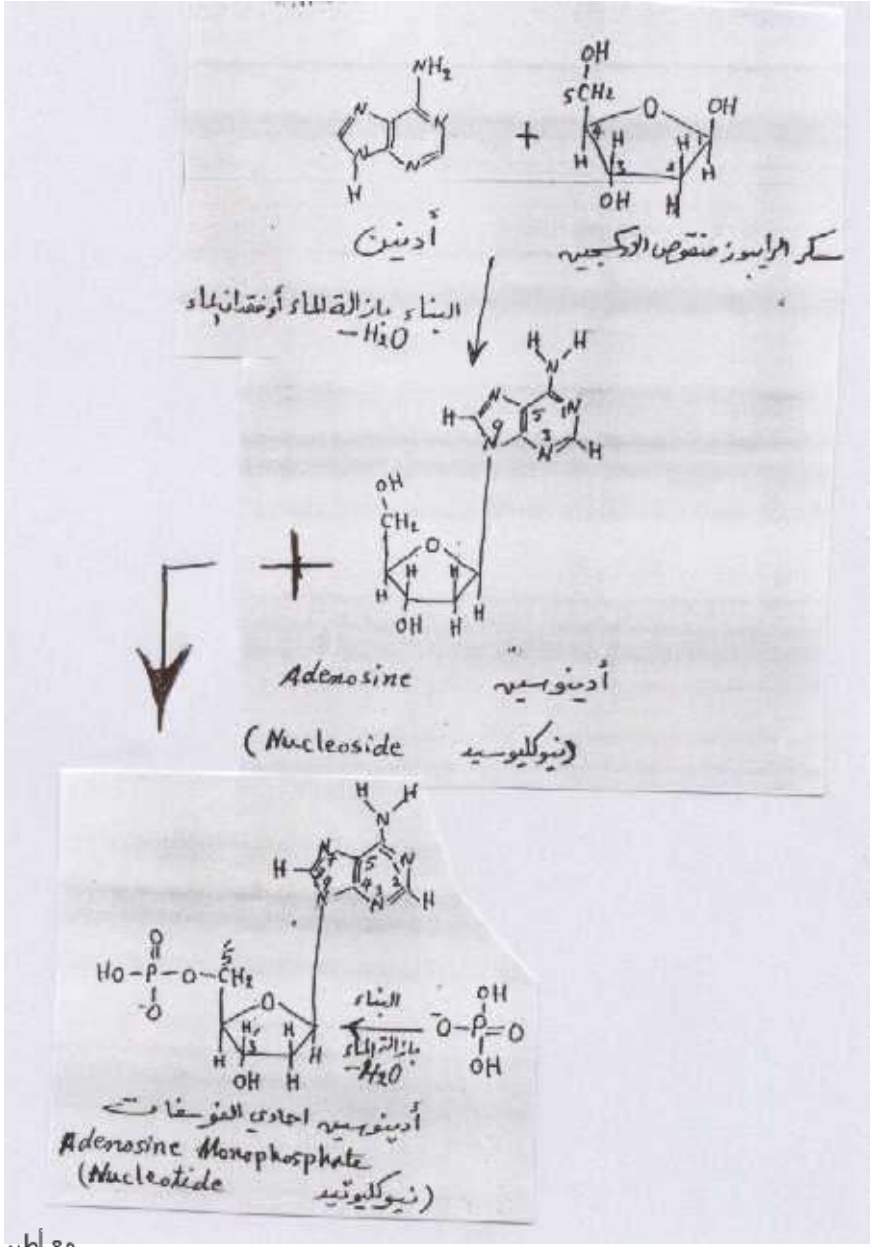 NH₂
N N
N N
H
+
OH
5CH₂
O OH
4 H H 1
H 3 2 H
OH H
أدينين
سكر الرايبوز منقوص الاوكسجين
البناء بازالة الماء أو فقدان الماء
-H₂O
H H
N
N 5 1 N
H 9
N N 3 H
OH
CH₂
O
H H H H
OH H
+
Adenosine أدينوسين
(Nucleoside نيوكليوسيد)
H H
N
N 7 5 N
H 8 2
9 4 3 H
N N
O
HO-P-O-CH₂ 5'
-O
O
H 3' H
H H
OH H
البناء
بازالة الماء
-H₂O
OH
-O-P=O
OH
أدينوسين احادي الفوسفات
Adenosine Monophosphate
(Nucleotide نيوكليوتيد)